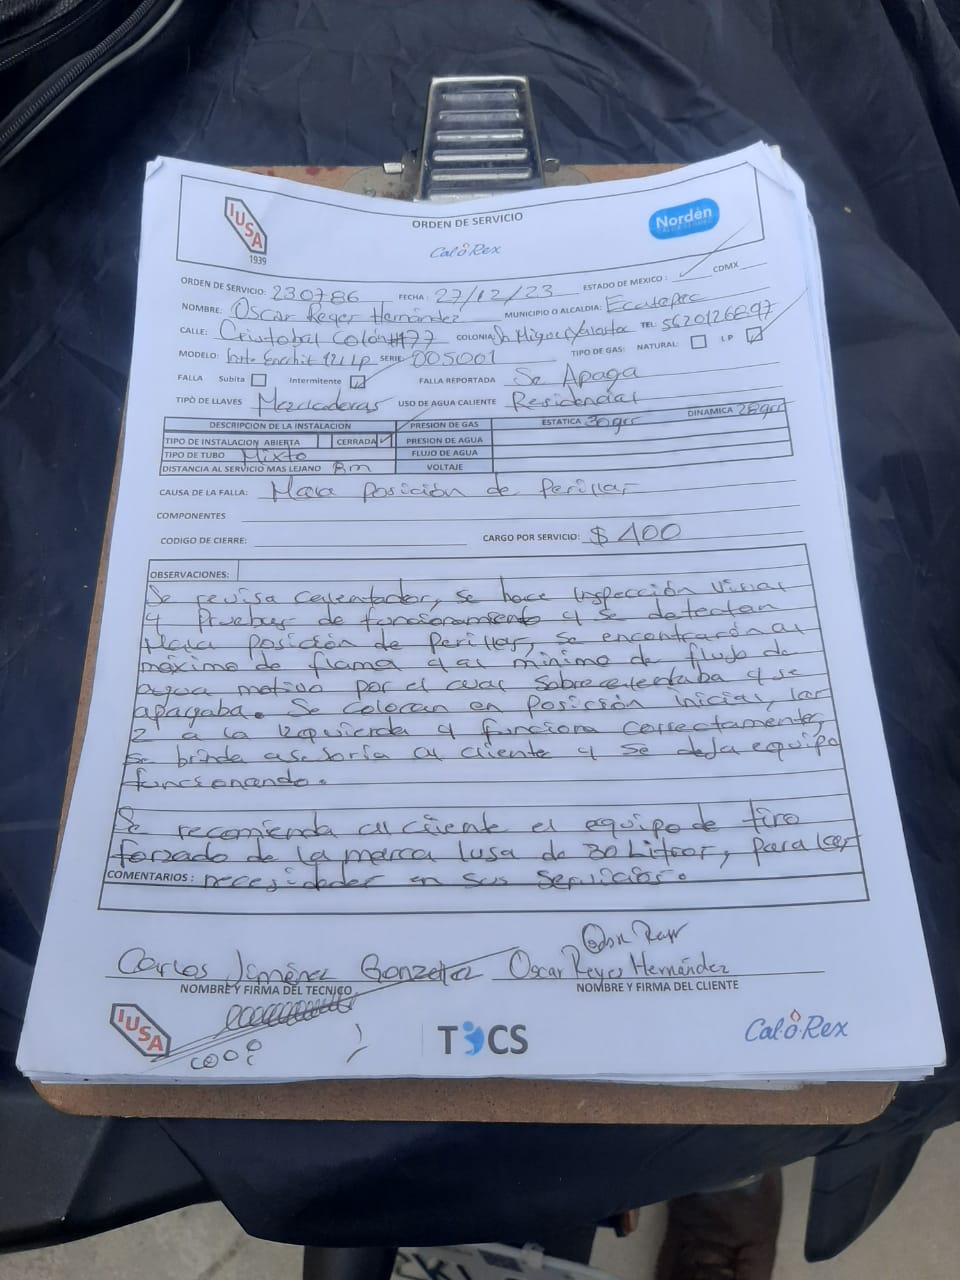 IUSA
1939
ORDEN DE SERVICIO
Cal-o-Rex
Nordèn
ORDEN DE SERVICIO: 230786 FECHA: 27/12/23 ESTADO DE MEXICO: ✓ CDMX
NOMBRE: Oscar Reyes Hernández MUNICIPIO O ALCALDIA: Ecatepec
CALLE: Cristobal Colón #177 COLONIA: Sn Miguel Xalostoc TEL: 5620126897
MODELO: 12 Lt LP SERIE: 005001 TIPO DE GAS: NATURAL: L P
FALLA Subita Intermitente ✓ FALLA REPORTADA Se Apaga
TIPO DE LLAVES Mezcladoras USO DE AGUA CALIENTE Residencial
DESCRIPCION DE LA INSTALACION PRESION DE GAS ESTATICA 30grs DINAMICA 28grs
TIPO DE INSTALACION ABIERTA CERRADA ✓ PRESION DE AGUA
TIPO DE TUBO Mixto FLUJO DE AGUA
DISTANCIA AL SERVICIO MAS LEJANO 8m VOLTAJE
CAUSA DE LA FALLA: Mala posición de Perillas
COMPONENTES
CODIGO DE CIERRE: CARGO POR SERVICIO: $ 400
OBSERVACIONES:
Se revisa calentador, se hace inspección visual
y Pruebas de funcionamiento y se detectan
Mala posición de Perillas, se encontrarón al
máximo de flama y al mínimo de flujo de
agua motivo por el cual sobrecalentaba y se
apagaba. Se colocan en posición inicial, las
2 a la izquierda y funciona correctamente,
se brinda asesoría al cliente y se deja equipo
funcionando.
Se recomienda al cliente el equipo de tiro
forzado de la marca Iusa de 30 Litros, para las
COMENTARIOS: necesidades en sus servicios.
Carlos Jiménez Oscar Reyes Hernández
NOMBRE Y FIRMA DEL TECNICO NOMBRE Y FIRMA DEL CLIENTE
IUSA
TCS
Cal-o-Rex